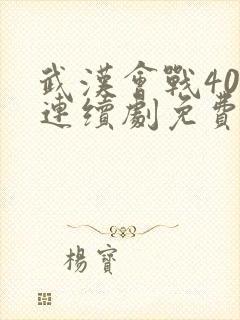 武漢會戰40
連續劇免費
楊寶